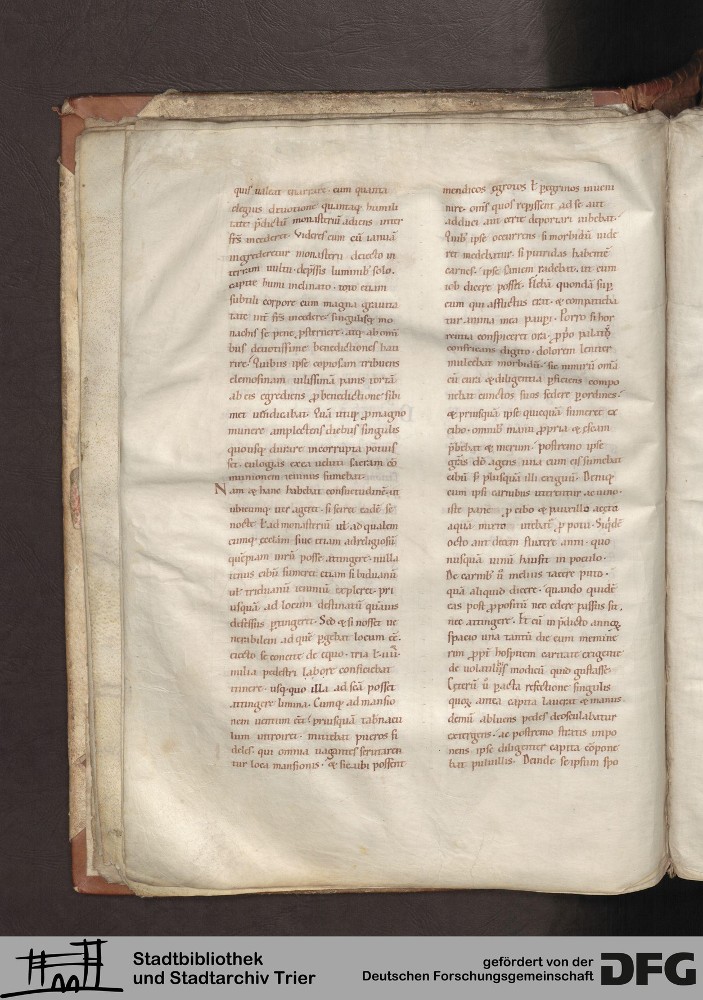 quis ualeat enarrare. cum quanta
elegans deuotione quantaq; humili
tate p̄dictū monasteriū adiens inter
fr̄s incederet. Videres eum cū ianuā
ingrederetur monasterii deiecto in
terram uultu. dep̄ssis luminib; solo.
capite humi inclinato. toto etiam
subtili corpore cum magna grauita
tate int̄ fr̄s incedere. singulisq; mo
nachis se pene p̄sternere. atq; ab omī
bus deuotissime benedictiones hau
rire. Quibus ipse copiosam tribuens
elemosinam uilissimā panis tortā
ab eis egrediens p̱ benedictione sibi
met uendicabat. Quā utiq; p̱ magno
munere amplectens diebus singulis
quousq; durare incorrupta potuis
set. eulogias ex ea ueluti sacram cō
munionem ieiunus sumebat.
Nam & hanc habebat consuetudinē. ut
ubicumq; iter ageret. si sciret eadē se
nocte ł ad monasteriū uł ad qualem
cumq; eccłam siue etiam ad religiosū
quēpiam uirū posse attingere. nulla
tenus cibū sumeret etiam si biduanū
uł triduanū ieiuniū expleret. pri
usquā ad locum destinatū quāuis
defessus p̱tingeret. Sed & si nosset ue
nerabilem ad quē p̱gebat locum eē.
eiecto se concite de equo. tria ł iiii
milia pedestri labore conficiebat
itinere. usq; quo illa ad sc̄ā posset
attingere limina. Cumq; ad mansio
nem uentum eēt. priusquā tab̄nacu
lum introiret. mittebat pueros fi
deles. qui omnia uagantes scrutaren
tur loca mansionis. & sic ubi possent
mendicos egrotos ł p̱egrinos inueni
nire. om̄s quos repp̱issent ad se aut
adduci aut certe deportari iubebat.
Quib; ipse occurrens si morbidū uide
ret medebatur. si putridas habentē
carnes. ipse saniem radebat. ut eum
iob dicere posset. Flebā quondā sup̱
eum qui afflictus erat. & compatieba
tur anima mea paup̱i. Porro si hor
rentia conspiceret ora. p̱p̱o
confricans digito. dolorem leniter
mulcebat morbidū. sic nimirū omīa
cū cura & diligentia p̱ficiens compo
nebat cunctos suos sedere p̱ ordines.
& priusquā ipse quicquā sumeret ex
cibo. omnib; manu p̱pria & escam
p̄bebat & merum. postremo ipse
gr̄as dō agens una cum eis sumebat
cibū s; plusquā illi exiguū. Deniq;
cum ipsi carnibus uterentur ac uino.
iste pane p̱ cibo & pauxillo aceto
aqua mixto utebat̄ p̱ potu. Siq̇dē
octo aut decem fluxere anni. quo
nusquā uinū hausit in poculo.
De carnib; ū melius tacere puto.
quā aliquid dicere. quando quidē
eas post p̱positū nec edere passus sit.
nec attingere. Et cū in p̄dicto annoꝝ
spacio una tantū die eum memine
rim p̱pt̄ hospitem caritate exigente
de uolatilib; modicū quid gustasse.
Ceterū ū pacta refectione singulis
quoq; antea capita lauerat & manus.
demū abluens pedes deosculabatur
extergens. ac postremo stratis impo
nens ipse diligenter capita cōpone
bat puluillis. Deinde se ipsum spo
Stadtbibliothek
und Stadtarchiv Trier
gefördert von der
Deutschen Forschungsgemeinschaft
DFG